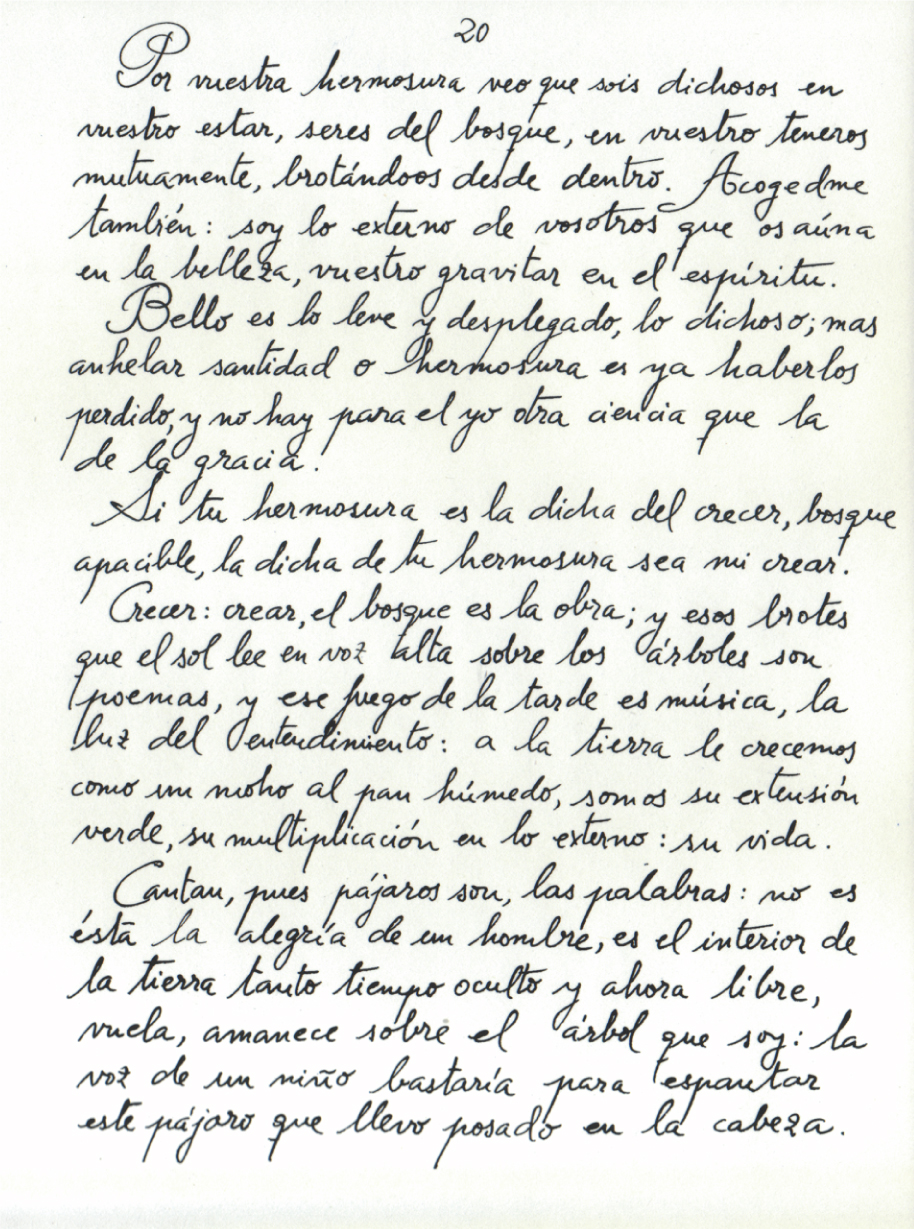 20
Por vuestra hermosura veo que sois dichosos en
vuestro estar, seres del bosque, en vuestro teneros
mutuamente, brotándoos desde dentro. Acogedme
también: soy lo externo de vosotros que os aúna
en la belleza, vuestro gravitar en el espíritu.
Bello es lo leve y desplegado, lo dichoso; mas
anhelar santidad o hermosura es ya haberlos
perdido, y no hay para el yo otra ciencia que la
de la gracia.
Si tu hermosura es la dicha del crecer, bosque
apacible, la dicha de tu hermosura sea mi crear.
Crecer: crear, el bosque es la obra; y esos brotes
que el sol lee en voz alta sobre los árboles son
poemas, y ese fuego de la tarde es música, la
luz del entendimiento: a la tierra le crecemos
como un moho al pan húmedo, somos su extensión
verde, su multiplicación en lo externo: su vida.
Cantan, pues pájaros son, las palabras: no es
ésta la alegría de un hombre, es el interior de
la tierra tanto tiempo oculto y ahora libre,
vuela, amanece sobre el árbol que soy: la
voz de un niño bastaría para espantar
este pájaro que llevo posado en la cabeza.